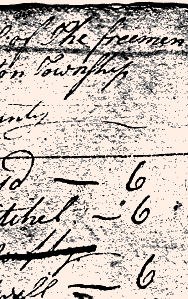 of The freemen
on Township
unty
d — 6
tchel — 6
well — 6